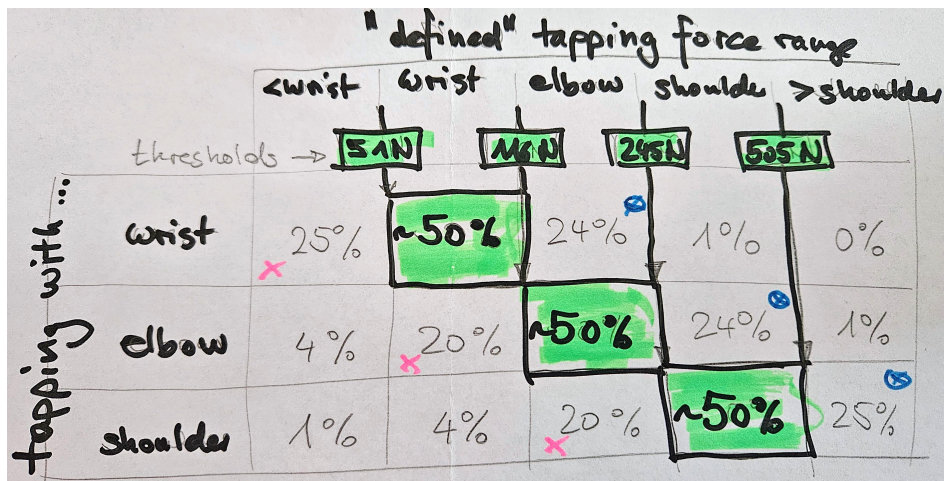 "defined" tapping force range
<wrist wrist elbow shoulder >shoulder
thresholds → 51N 116N 245N 505N
tapping with ...
wrist 25% ~50% 24% 1% 0%
elbow 4% 20% ~50% 24% 1%
shoulder 1% 4% 20% ~50% 25%